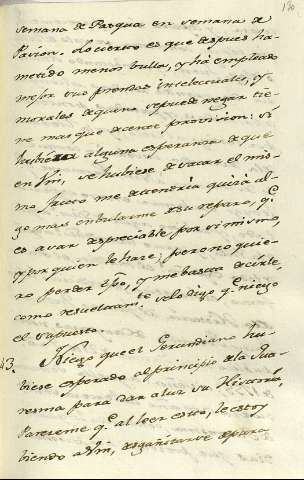 semana de Pasqua en semana de
Pasion. Lo cierto es que despues ha
metido menos bulla, y ha empleado
mejor sus prendas intelectuales, y
morales de que no se puede negar tie-
ne mas que decente provision: si
hubiera alguna esperanza de que
en Vm, se hubiese de sacar el mis-
mo fruto me detendria quizá al-
go mas en burlarme de su reparo, q.e
es a var despreciable por si mismo,
y por quien le hace; pero no quie-
ro perder tpo, y me basta decirle,
como resueltam.te se lo digo q.e niego
el supuesto.
43. Niego que el Gerundiano hu-
biese esperado al principio de la Qua-
resma para dar a luz su Historia,
Pareceme q.e al leer esto, le estoy
biendo a Vm, desgañitarse de puro